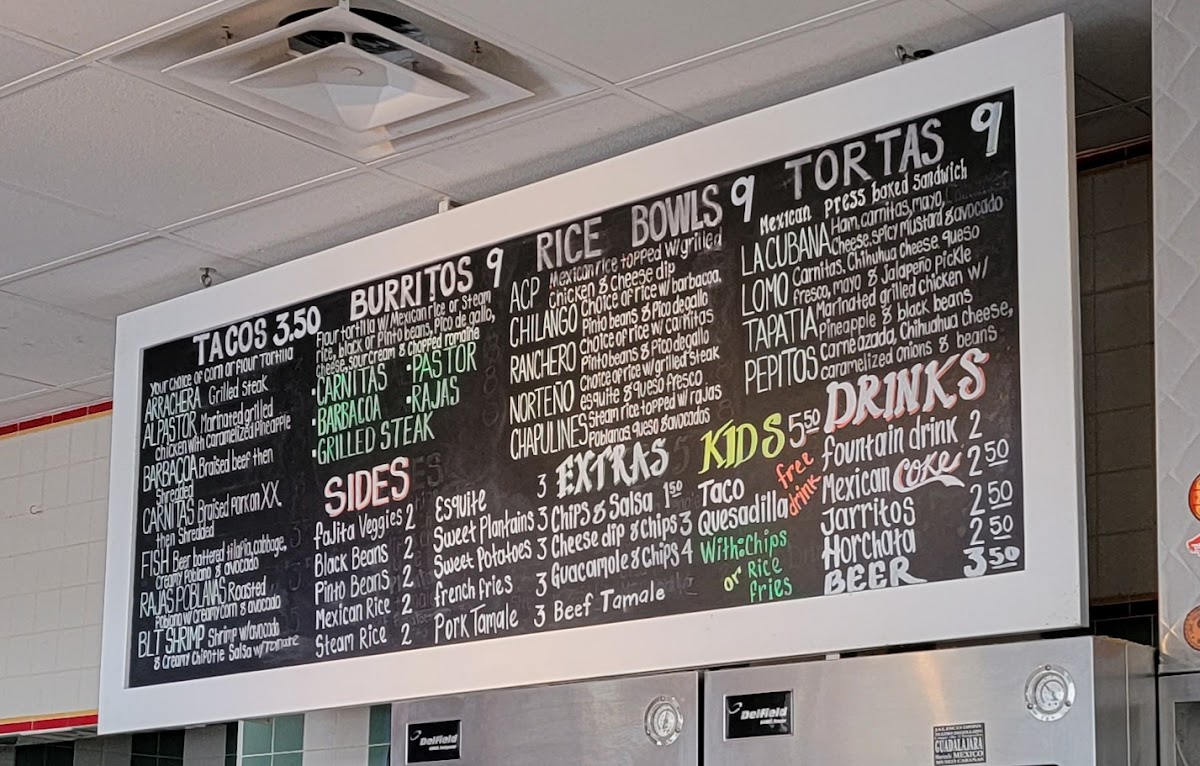 TACOS 3.50
Your choice of corn or flour Tortilla
ARRACHERA Grilled Steak
ALPASTOR Marinated grilled
chicken with caramelized Pineapple
BARBACOA Braised beef then
Shredded
CARNITAS Braised Pork on XX
then Shredded
FISH Beer battered tilapia, cabbage,
Creamy Poblano & avocado
RAJAS POBLANAS Roasted
Poblano w/ creamy corn & avocado
BLT SHRIMP Shrimp w/ avocado
& Creamy Chipotle Salsa w/ romaine
BURRITOS 9
Flour tortilla w/ Mexican rice or Steam
rice, black or Pinto beans, Pico de gallo,
cheese, sour cream & chopped romaine
•CARNITAS •PASTOR
•BARBACOA •RAJAS
•GRILLED STEAK
RICE BOWLS 9
Mexican rice topped w/ grilled
ACP chicken & cheese dip
CHILANGO Choice of rice w/ barbacoa,
Pinto beans & Pico de gallo
RANCHERO Choice of rice w/ carnitas
Pinto beans & Pico de gallo
NORTEÑO Choice of rice w/ grilled steak
esquite & queso fresco
CHAPULINES Steam rice topped w/ rajas
Poblanas, queso & avocados
TORTAS 9
Mexican press baked sandwich
LA CUBANA Ham, carnitas, mayo,
cheese, spicy mustard & avocado
LOMO Carnitas, Chihuhua cheese, queso
fresco, mayo & Jalapeño pickle
TAPATIA Marinated grilled chicken w/
pineapple & black beans
PEPITOS Carne azada, Chihuahua cheese,
caramelized onions & beans
SIDES
fajita Veggies 2
Black Beans 2
Pinto Beans 2
Mexican Rice 2
Steam Rice 2
Esquite 3
Sweet Plantains 3
Sweet Potatoes 3
french fries 3
Pork Tamale 3
EXTRAS
Chips & Salsa 1.50
Cheese dip & Chips 3
Guacamole & Chips 4
Beef Tamale
KIDS 5.50
Taco
Quesadilla
free
drink
With: Chips
or Rice
fries
DRINKS
fountain drink 2
Mexican COKE 2.50
Jarritos 2.50
Horchata 2.50
BEER 3.50
Delfield
Delfield
GUADALAJARA
MEXICO